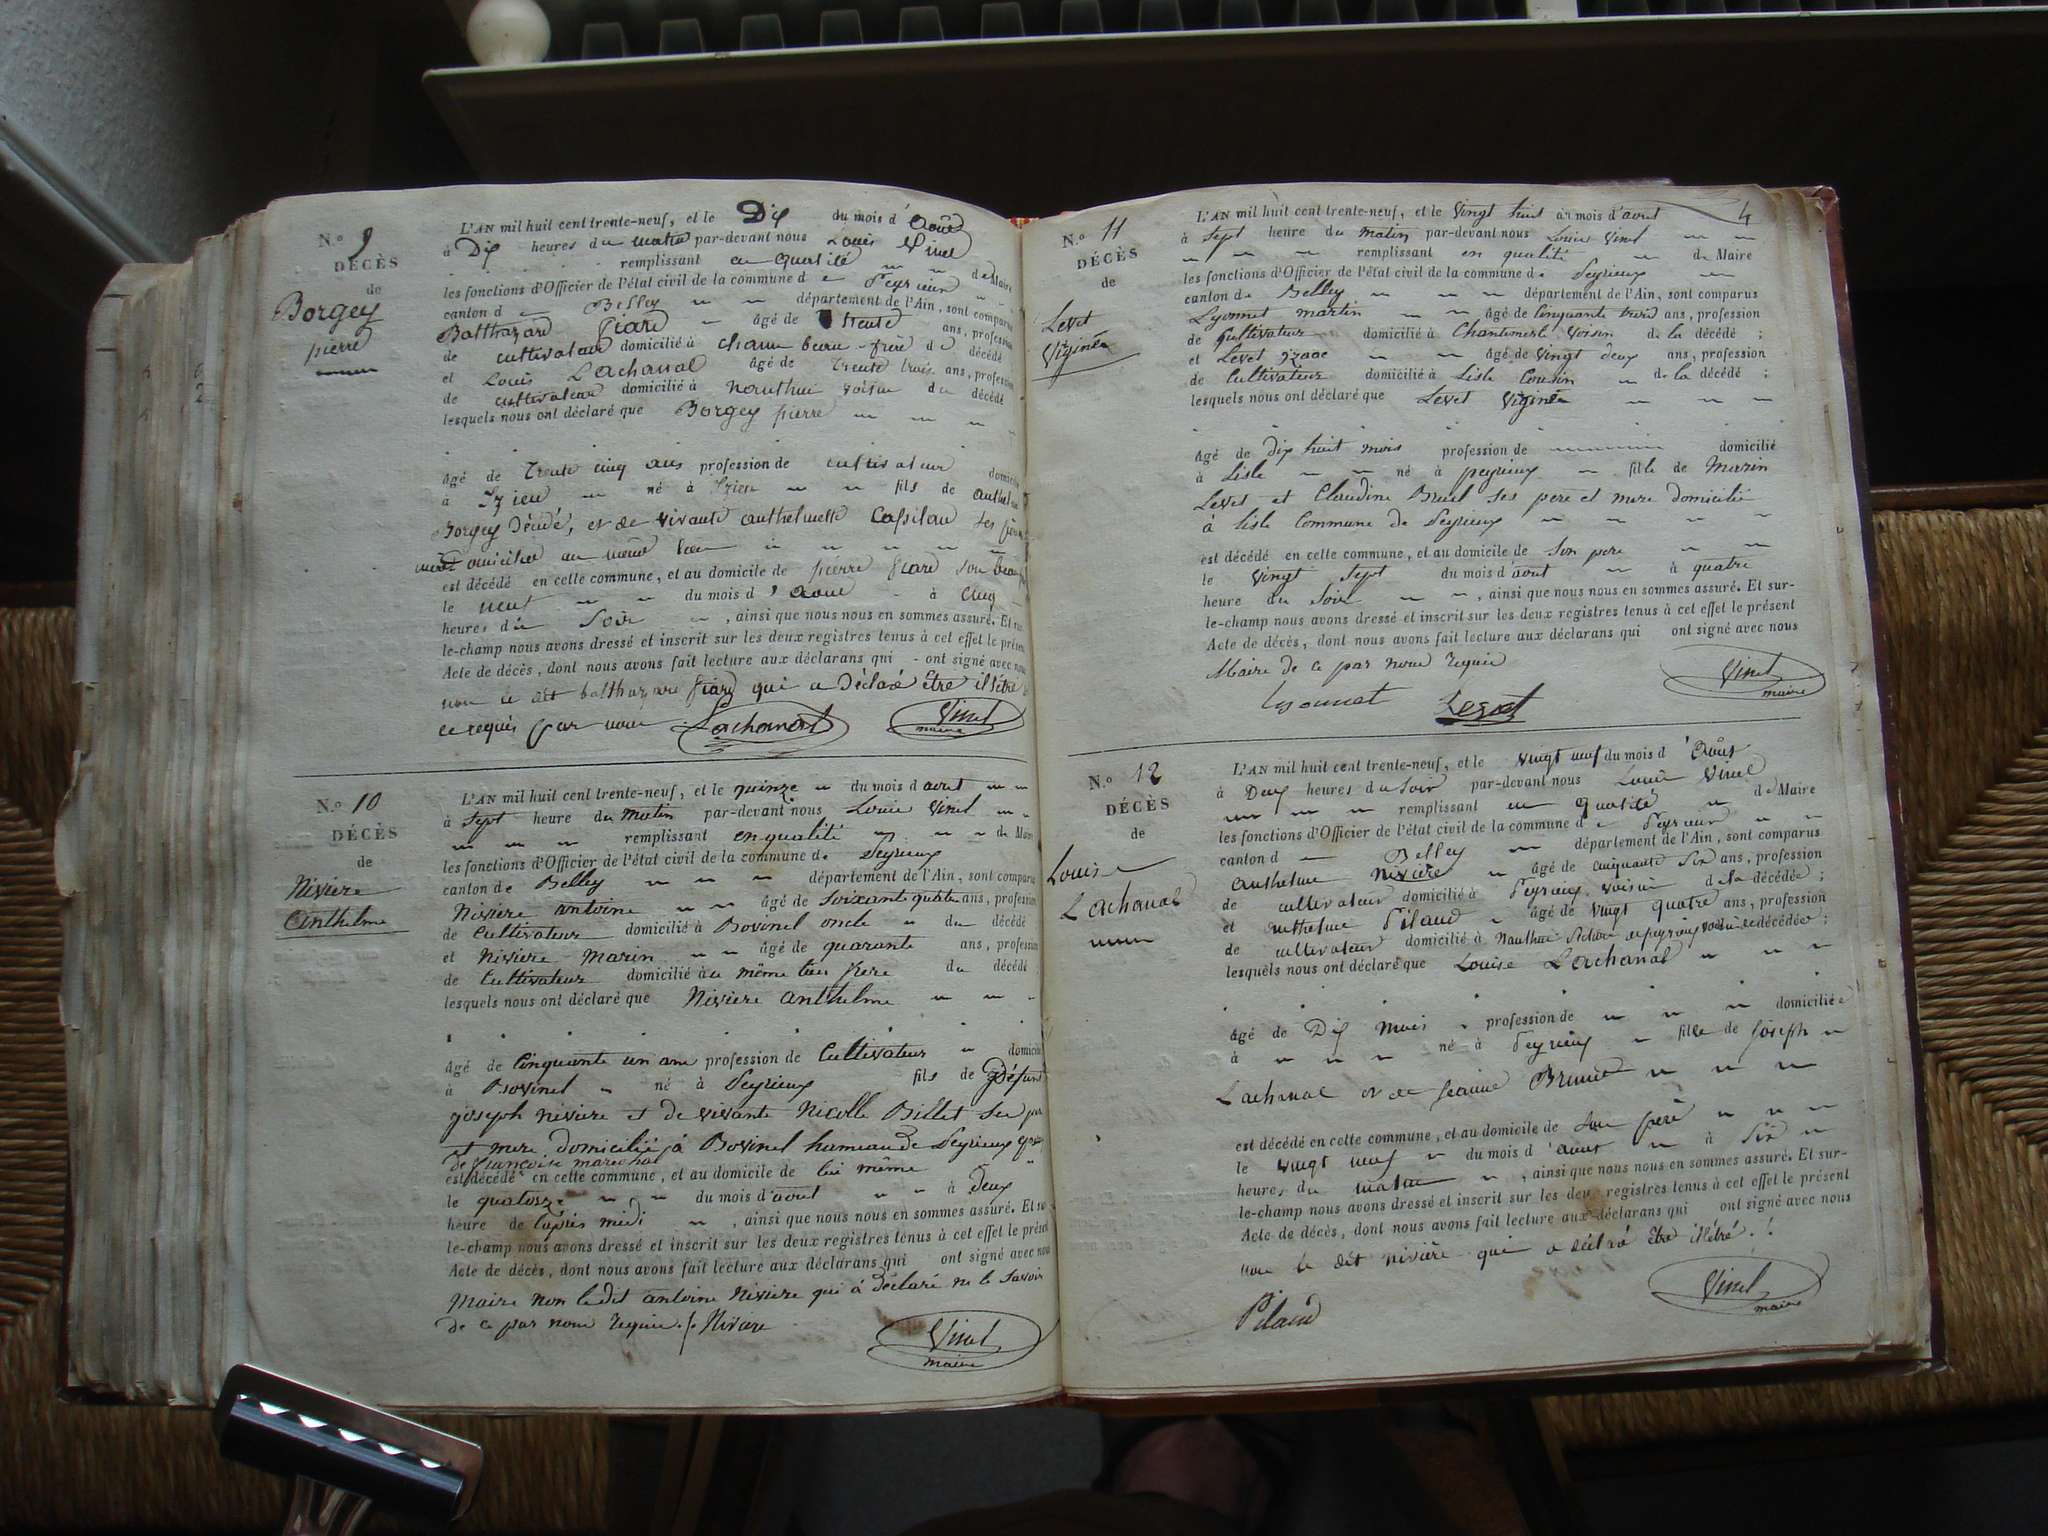 N.º 9
DÉCÈS
de
Borgey
pierre
L'AN mil huit cent trente-neuf, et le Dix du mois d'Aoûst
à Dix heures du matin par-devant nous Louis Vinel
remplissant en qualité de Maire
les fonctions d'Officier de l'état civil de la commune de Peyrieux
canton de Belley département de l'Ain, sont comparus
Balthazard Giard âgé de trente ans, profession
de cultivateur domicilié à beau-frère du décédé
et Louis Lachanal âgé de Trente trois ans, profession
de cultivateur domicilié à Nanthui voisin du décédé
lesquels nous ont déclaré que Borgey pierre
âgé de Trente cinq ans profession de cultivateur domicilié
à Izieu né à Izieu fils de
Borgey Décédé, et de vivante anthelmette ses père
domiciliée au même lieu
est décédé en cette commune, et au domicile de pierre Giard son beau
le neuf du mois d'aout à cinq
heures du Soir, ainsi que nous nous en sommes assuré. Et sur
le-champ nous avons dressé et inscrit sur les deux registres tenus à cet effet le présent
Acte de décès, dont nous avons fait lecture aux déclarans qui ont signé avec nous
non le dit balthazard Giard qui a Déclaré être illétré
ce requis par nous Lachanal Vinel
maire
N.º 10
DÉCÈS
de
Nivière
Anthelme
L'AN mil huit cent trente-neuf, et le quinze du mois d'aout
à Sept heure du Matin par-devant nous Louis Vinel
remplissant en qualité de Maire
les fonctions d'Officier de l'état civil de la commune de Peyrieux
canton de Belley département de l'Ain, sont comparus
Nivière antoine âgé de soixante quatre ans, profession
de Cultivateur domicilié à Bovinel oncle du décédé
et Nivière Marin âgé de quarante ans, profession
de Cultivateur domicilié au même lieu frère du décédé
lesquels nous ont déclaré que Nivière anthelme
âgé de Cinquante un ans profession de Cultivateur domicilié
à Bovinel né à Peyrieux fils de Défunt
joseph nivière et de vivante Nicolle Billet ses père
et mere domicilié à Bovinel hameau de Peyrieux
de françoise marechal
est décédé en cette commune, et au domicile de lui même
le quatorze du mois d'aout à deux
heure de l'après midi, ainsi que nous nous en sommes assuré. Et sur
le-champ nous avons dressé et inscrit sur les deux registres tenus à cet effet le présent
Acte de décès, dont nous avons fait lecture aux déclarans qui ont signé avec nous
Maire non ledit antoine Nivière qui à déclaré ne le savoir
de ce par nous requis ./. Nivière
Vinel
maire
4
N.º 11
DÉCÈS
de
Levet
Viginée
L'AN mil huit cent trente-neuf, et le Vingt huit du mois d'aout
à Sept heure du Matin par-devant nous Louis Vinel
remplissant en qualité de Maire
les fonctions d'Officier de l'état civil de la commune de Peyrieux
canton de Belley département de l'Ain, sont comparus
Lyonnet martin âgé de Cinquante trois ans, profession
de Cultivateur domicilié à Chantemerle Voisin de la décédé ;
et Levet izaac âgé de Vingt deux ans, profession
de Cultivateur domicilié à Lisle Cousin de la décédé ;
lesquels nous ont déclaré que Levet Viginée
âgé de dix huit mois profession de domicilié
à Lisle né à peyrieux fille de Marin
Levet et Claudine Bruel ses pere et mere domicilié
à lisle Commune de Peyrieux
est décédé en cette commune, et au domicile de son pere
le vingt sept du mois d'aout à quatre
heure du Soir, ainsi que nous nous en sommes assuré. Et sur-
le-champ nous avons dressé et inscrit sur les deux registres tenus à cet effet le présent
Acte de décès, dont nous avons fait lecture aux déclarans qui ont signé avec nous
Maire de ce par nous requis
Lyonnet Levet Vinel
maire
N.º 12
DÉCÈS
de
Louise
Lachanal
L'AN mil huit cent trente-neuf, et le vingt neuf du mois d'Aoûst
à Deux heures du Soir par-devant nous Louis Vinel
remplissant en qualité de Maire
les fonctions d'Officier de l'état civil de la commune de Peyrieux
canton de Belley département de l'Ain, sont comparus
Anthelme Nivière âgé de cinquante six ans, profession
de cultivateur domicilié à Peyrieux voisin de la décédée ;
et anthelme Pilaud âgé de vingt quatre ans, profession
de cultivateur domicilié à Nanthui de peyrieux voisin de décédée ;
lesquels nous ont déclaré que Louise Lachanal
âgé de Dix Mois profession de domiciliée
à né à Peyrieux fille de joseph
Lachanal et de jeanne Brunet
est décédé en cette commune, et au domicile de son père
le vingt neuf du mois d'aout à six
heures du matin, ainsi que nous nous en sommes assuré. Et sur-
le-champ nous avons dressé et inscrit sur les deux registres tenus à cet effet le présent
Acte de décès, dont nous avons fait lecture aux déclarans qui ont signé avec nous
non le dit nivière qui a déclaré être illétré ./.
Pilaud
Vinel
maire